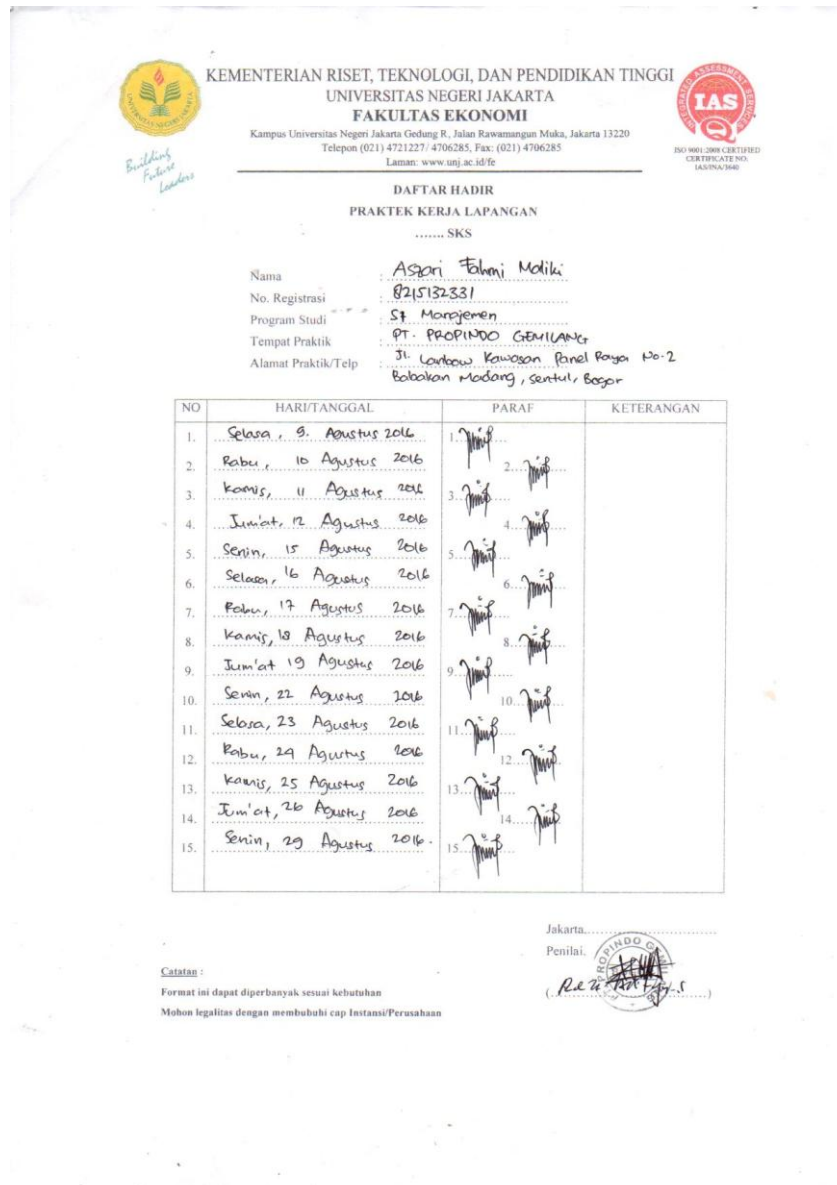 KEMENTERIAN RISET, TEKNOLOGI, DAN PENDIDIKAN TINGGI
UNIVERSITAS NEGERI JAKARTA
FAKULTAS EKONOMI
Kampus Universitas Negeri Jakarta Gedung R, Jalan Rawamangun Muka, Jakarta 13220
Telepon (021) 4721227/ 4706285, Fax: (021) 4706285
Laman: www.unj.ac.id/fe
UNIVERSITAS NEGERI JAKARTA
Building
Future
Leaders
INTEGRATED ASSESSMENT SERVICES
IAS
ISO 9001:2008 CERTIFIED
CERTIFICATE NO:
IAS/INA/3640
DAFTAR HADIR
PRAKTEK KERJA LAPANGAN
....... SKS
Nama : Aszari Fahmi Maliki
No. Registrasi : 8215132331
Program Studi : S1 Manajemen
Tempat Praktik : PT. PROPINDO GEMILANG
Alamat Praktik/Telp : Jl. Kawasan Panel Raya No.2
Babakan Madang, Sentul, Bogor
NO HARI/TANGGAL PARAF KETERANGAN
1. Selasa, 9. Agustus 2016 1.
2. Rabu, 10 Agustus 2016 2.
3. Kamis, 11 Agustus 2016 3.
4. Jum'at, 12 Agustus 2016 4.
5. Senin, 15 Agustus 2016 5.
6. Selasa, 16 Agustus 2016 6.
7. Rabu, 17 Agustus 2016 7.
8. Kamis, 18 Agustus 2016 8.
9. Jum'at 19 Agustus 2016 9.
10. Senin, 22 Agustus 2016 10.
11. Selasa, 23 Agustus 2016 11.
12. Rabu, 24 Agustus 2016 12.
13. Kamis, 25 Agustus 2016 13.
14. Jum'at, 26 Agustus 2016 14.
15. Senin, 29 Agustus 2016. 15.
Jakarta,
Penilai,
Catatan :
Format ini dapat diperbanyak sesuai kebutuhan
Mohon legalitas dengan membubuhi cap Instansi/Perusahaan